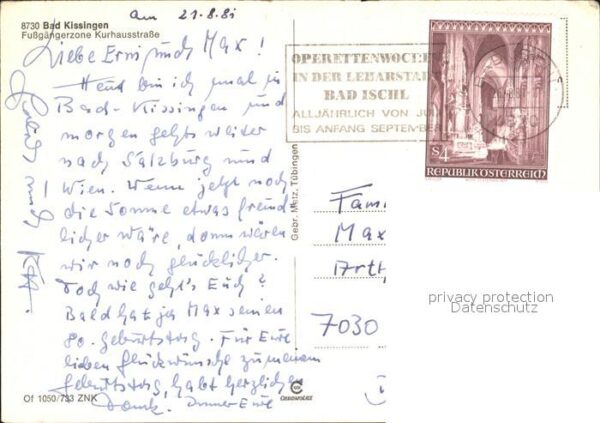 am 21.8.81
8730 Bad Kissingen
Fußgängerzone Kurhausstraße
Liebe Erni und Max!
Heut bin ich mal in
Bad-Kissingen und
morgen geht's weiter
nach Salzburg und
Wien. Wenn jetzt noch
die Sonne etwas freund
licher wäre, dann wären
wir noch glücklicher.
Doch wie geht's Euch?
Bald hat ja Max seinen
80. Geburtstag. Für Eure
lieben Glückwünsche zu meinem
Geburtstag, habt herzlichen
Dank. Immer Eure
und
Of 1050/733 ZNK
Gebr. Metz, Tübingen
OPERETTENWOCHE
IN DER LEHARSTADT
BAD ISCHL
ALLJÄHRLICH VON JU
BIS ANFANG SEPTEMBE
S4
REPUBLIK ÖSTERREICH
Fam.
Max
7030
privacy protection
Datenschutz